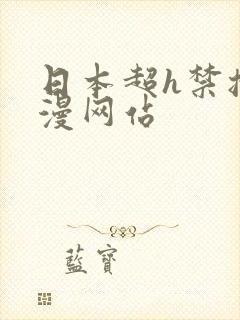 日本超h禁
漫网佔
藍寶